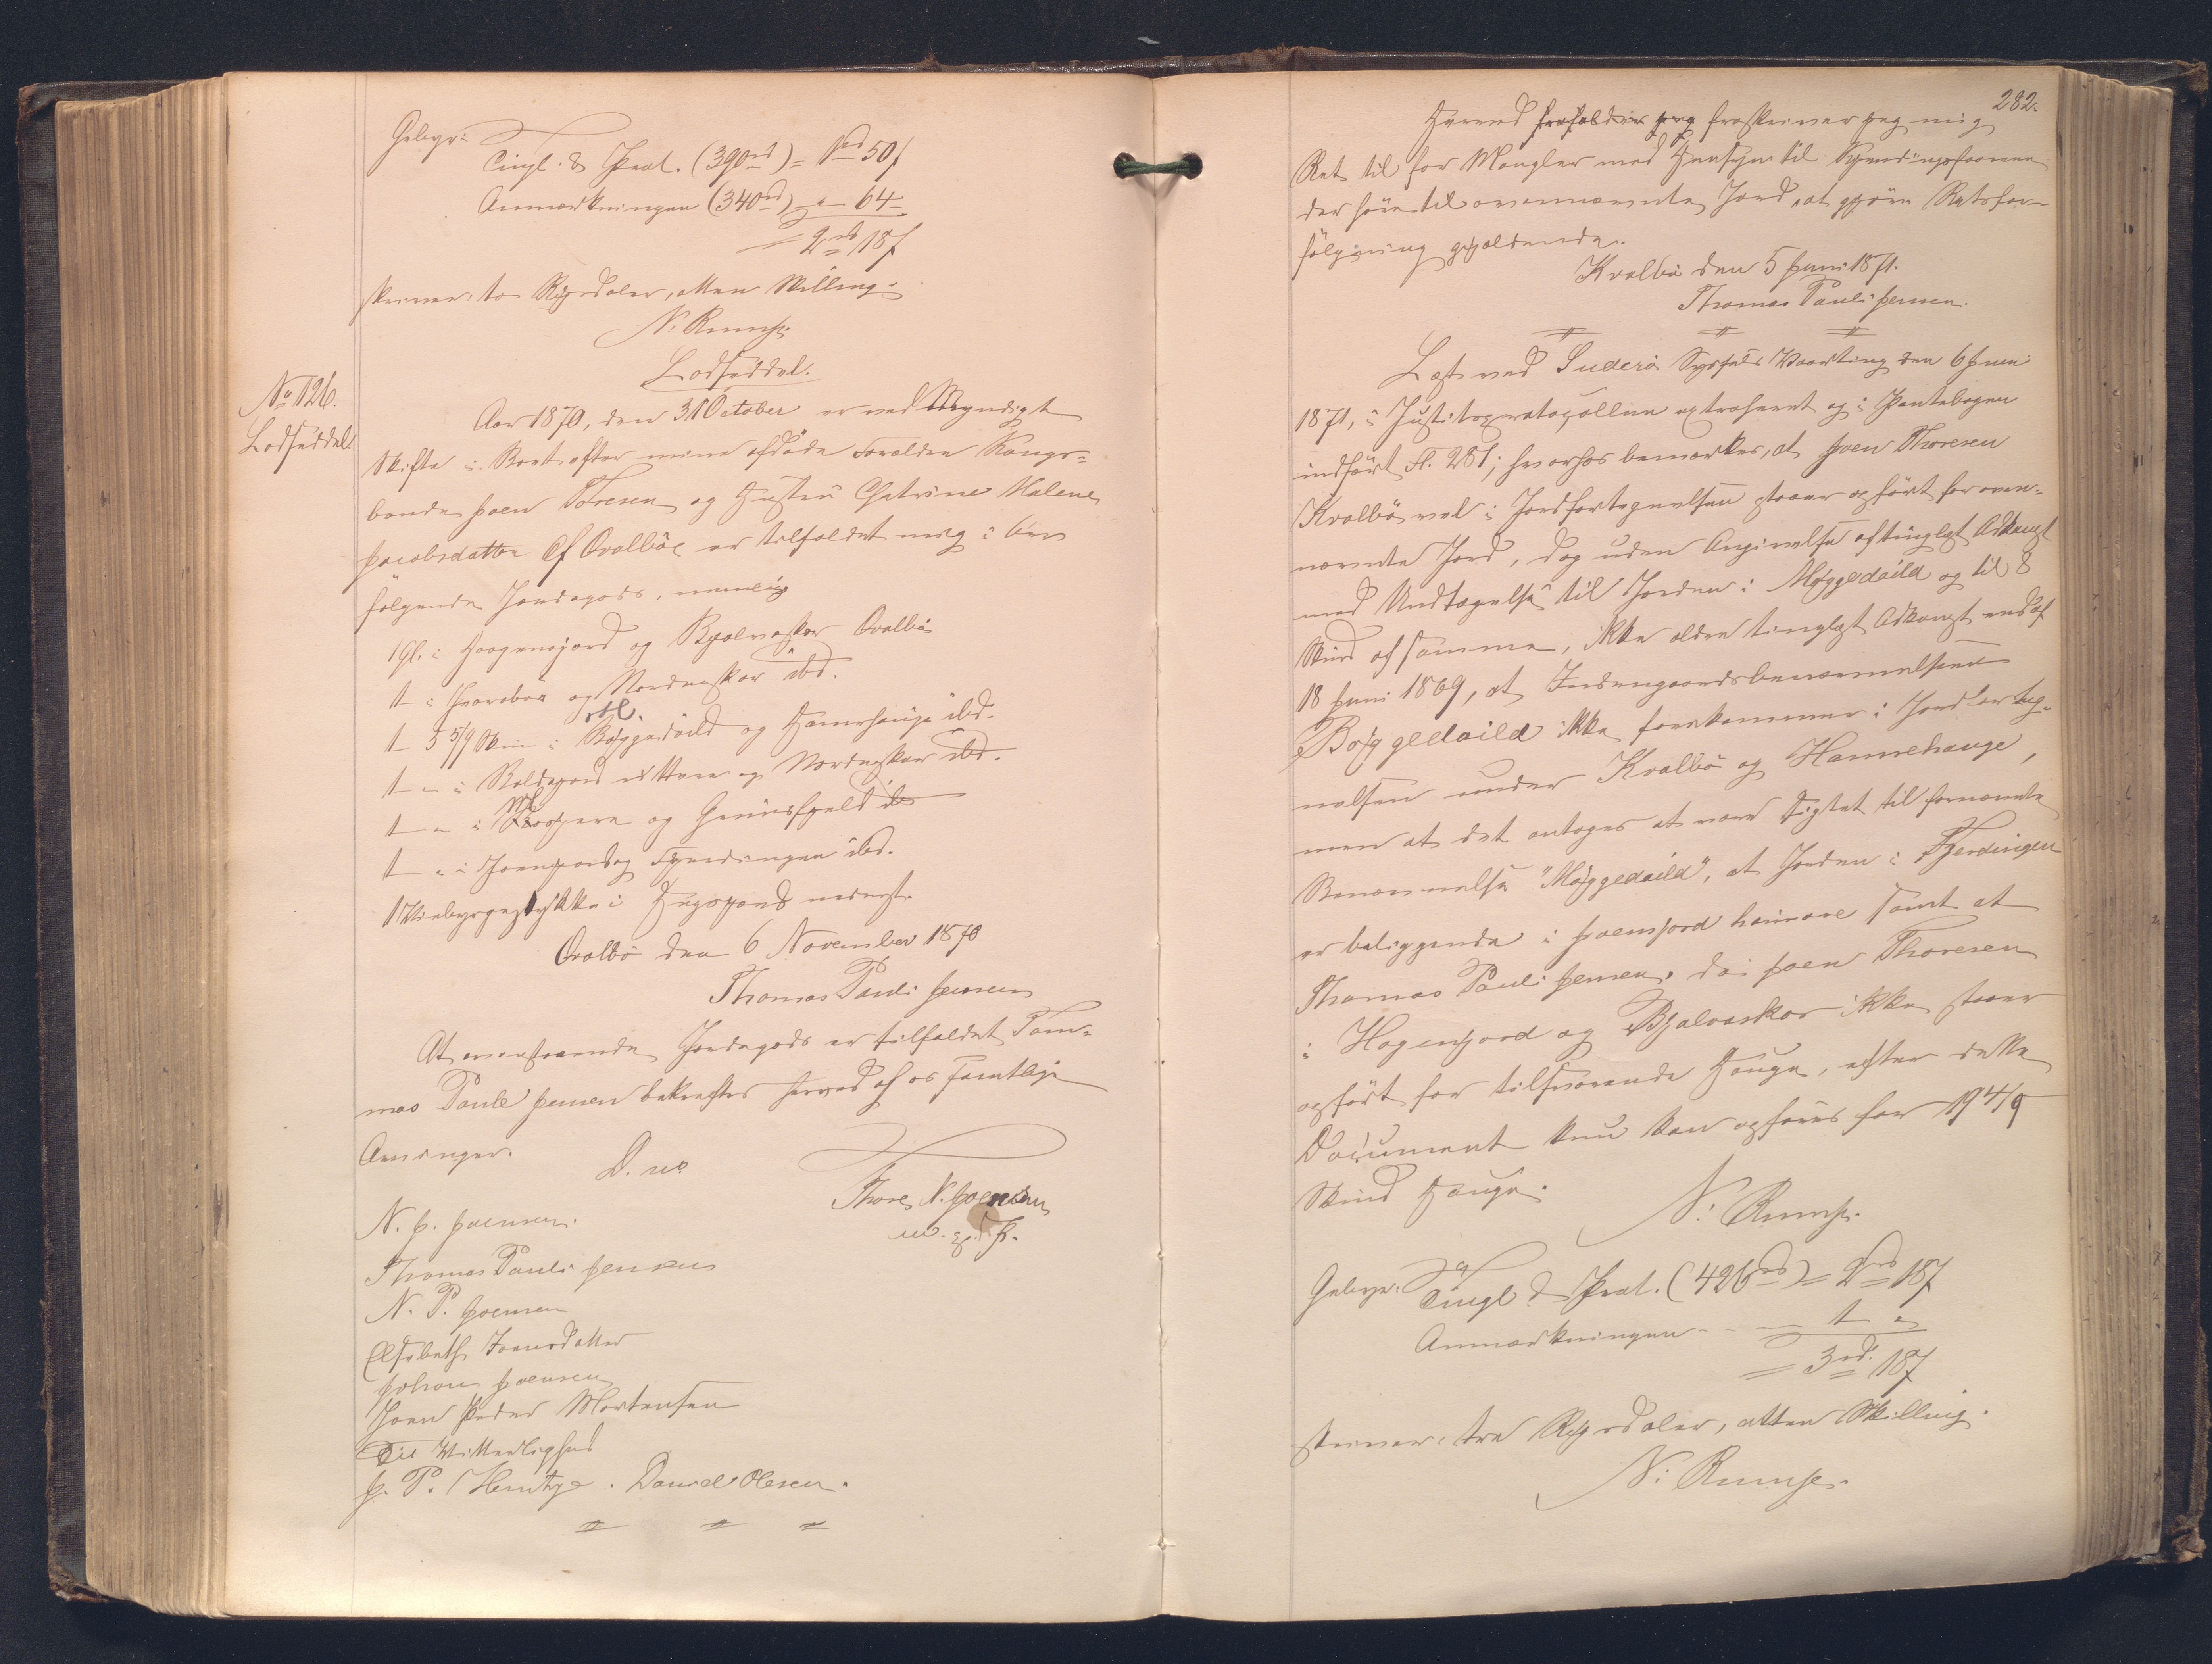 Gebyr:
Tingl. & Prot. (390rd) = 1rd 50ß
Anmærkningen (340rd) = " 64 -
= 2rd 18ß
skriver: to Rigsdaler, atten Skilling.
N. Rump.
Lodseddel.
No 126.
Lodseddel.
Aar 1870, den 31 October er ved Myndigt
Skifte i Boet efter mine afdøde Forældre Kongs-
bonde Joen Toresen og Hustru Chatrine Malene
Jacobsdatter af Qvalbøe er tilfaldet mig i Arv
følgende Jordegods, nemlig
1 Gl. i Haagensjord og Bjalveskor Qvalbø
1 - i Heorebøe og Nordreskor ibd.
1 - 3 5/9 Skin i Bøggedeild og Hamrhauje ibd.
1 - " i og Nordreskor ibd.
1 - " i og Grimsfjeld ibd
1 - " i Joensjord og Fjerdingen ibd.
1 i nederst.
Qvalbø den 6 November 1870
Thomas Pauli Jensen
At ovenstaaende Jordegods er tilfaldet Tom-
mas Paule Jensen bekræftes herved af os samtlige
Arvinger.
D. us
N. J. Joensen.
Thore N. Joensen
m. f. P.
Thomas Pauli Jensen
N. P. Joensen
Elsebeth Joensdatter
Johan Joensen
Joen Peder Mortensen
Til Vitterlighed
J. P. Hentze. Daniel Olesen.
282.
Herved frafalder jeg fraskriver jeg mig
Ret til for Mangler med Hensyn til Skjendingsformen
der høre til ovennævnte Jord, at gjøre Retsfor-
følgning gjældende.
Kvalbø den 5 Juni 1871.
Thomas Pauli Jensen.
Læst ved Suderø Syssels Vaarting den 6 Juni
1871, i Justitsprotocollen extraheret og i Pantebogen
indført Fl. 281; hvorhos bemærkes, at Joen Thoresen
Kvalbø vel i Jordfortegnelsen staaer opført for oven-
nævnte Jord, dog uden Angivelse af tinglyst Adkomst
med Undtagelse til Jorden i Møggedeild og til 8
Skind af samme, ikke ældre tinglyst Adkomst end af
18 Juni 1869, at Indengaardsbenævnelsen
Bøggedeild ikke forekommer i Jordforteg-
nelsen under Kvalbø og Hamrehauge,
men at det antages at være sigtet til fornævnte
Benævnelse "Møggedeild", at Jorden i Fjerdingen
er beliggende i Joensjord heimare samt at
Thomas Pauli Jensen, da Joen Thoresen
i Hogenjord og Bjalveskor ikke staaer
opført for tilsvarende Hauge, efter dette
Document kun kan opføres for 19 4/9
Skind Hauge.
N. Rump.
Gebyr. Tingl & Prot. (426rd) = 2rd 18ß
Anmærkningen - - 1 - "
= 3rd. 18ß
skriver: tre Rigsdaler, atten Skilling.
N. Rump.